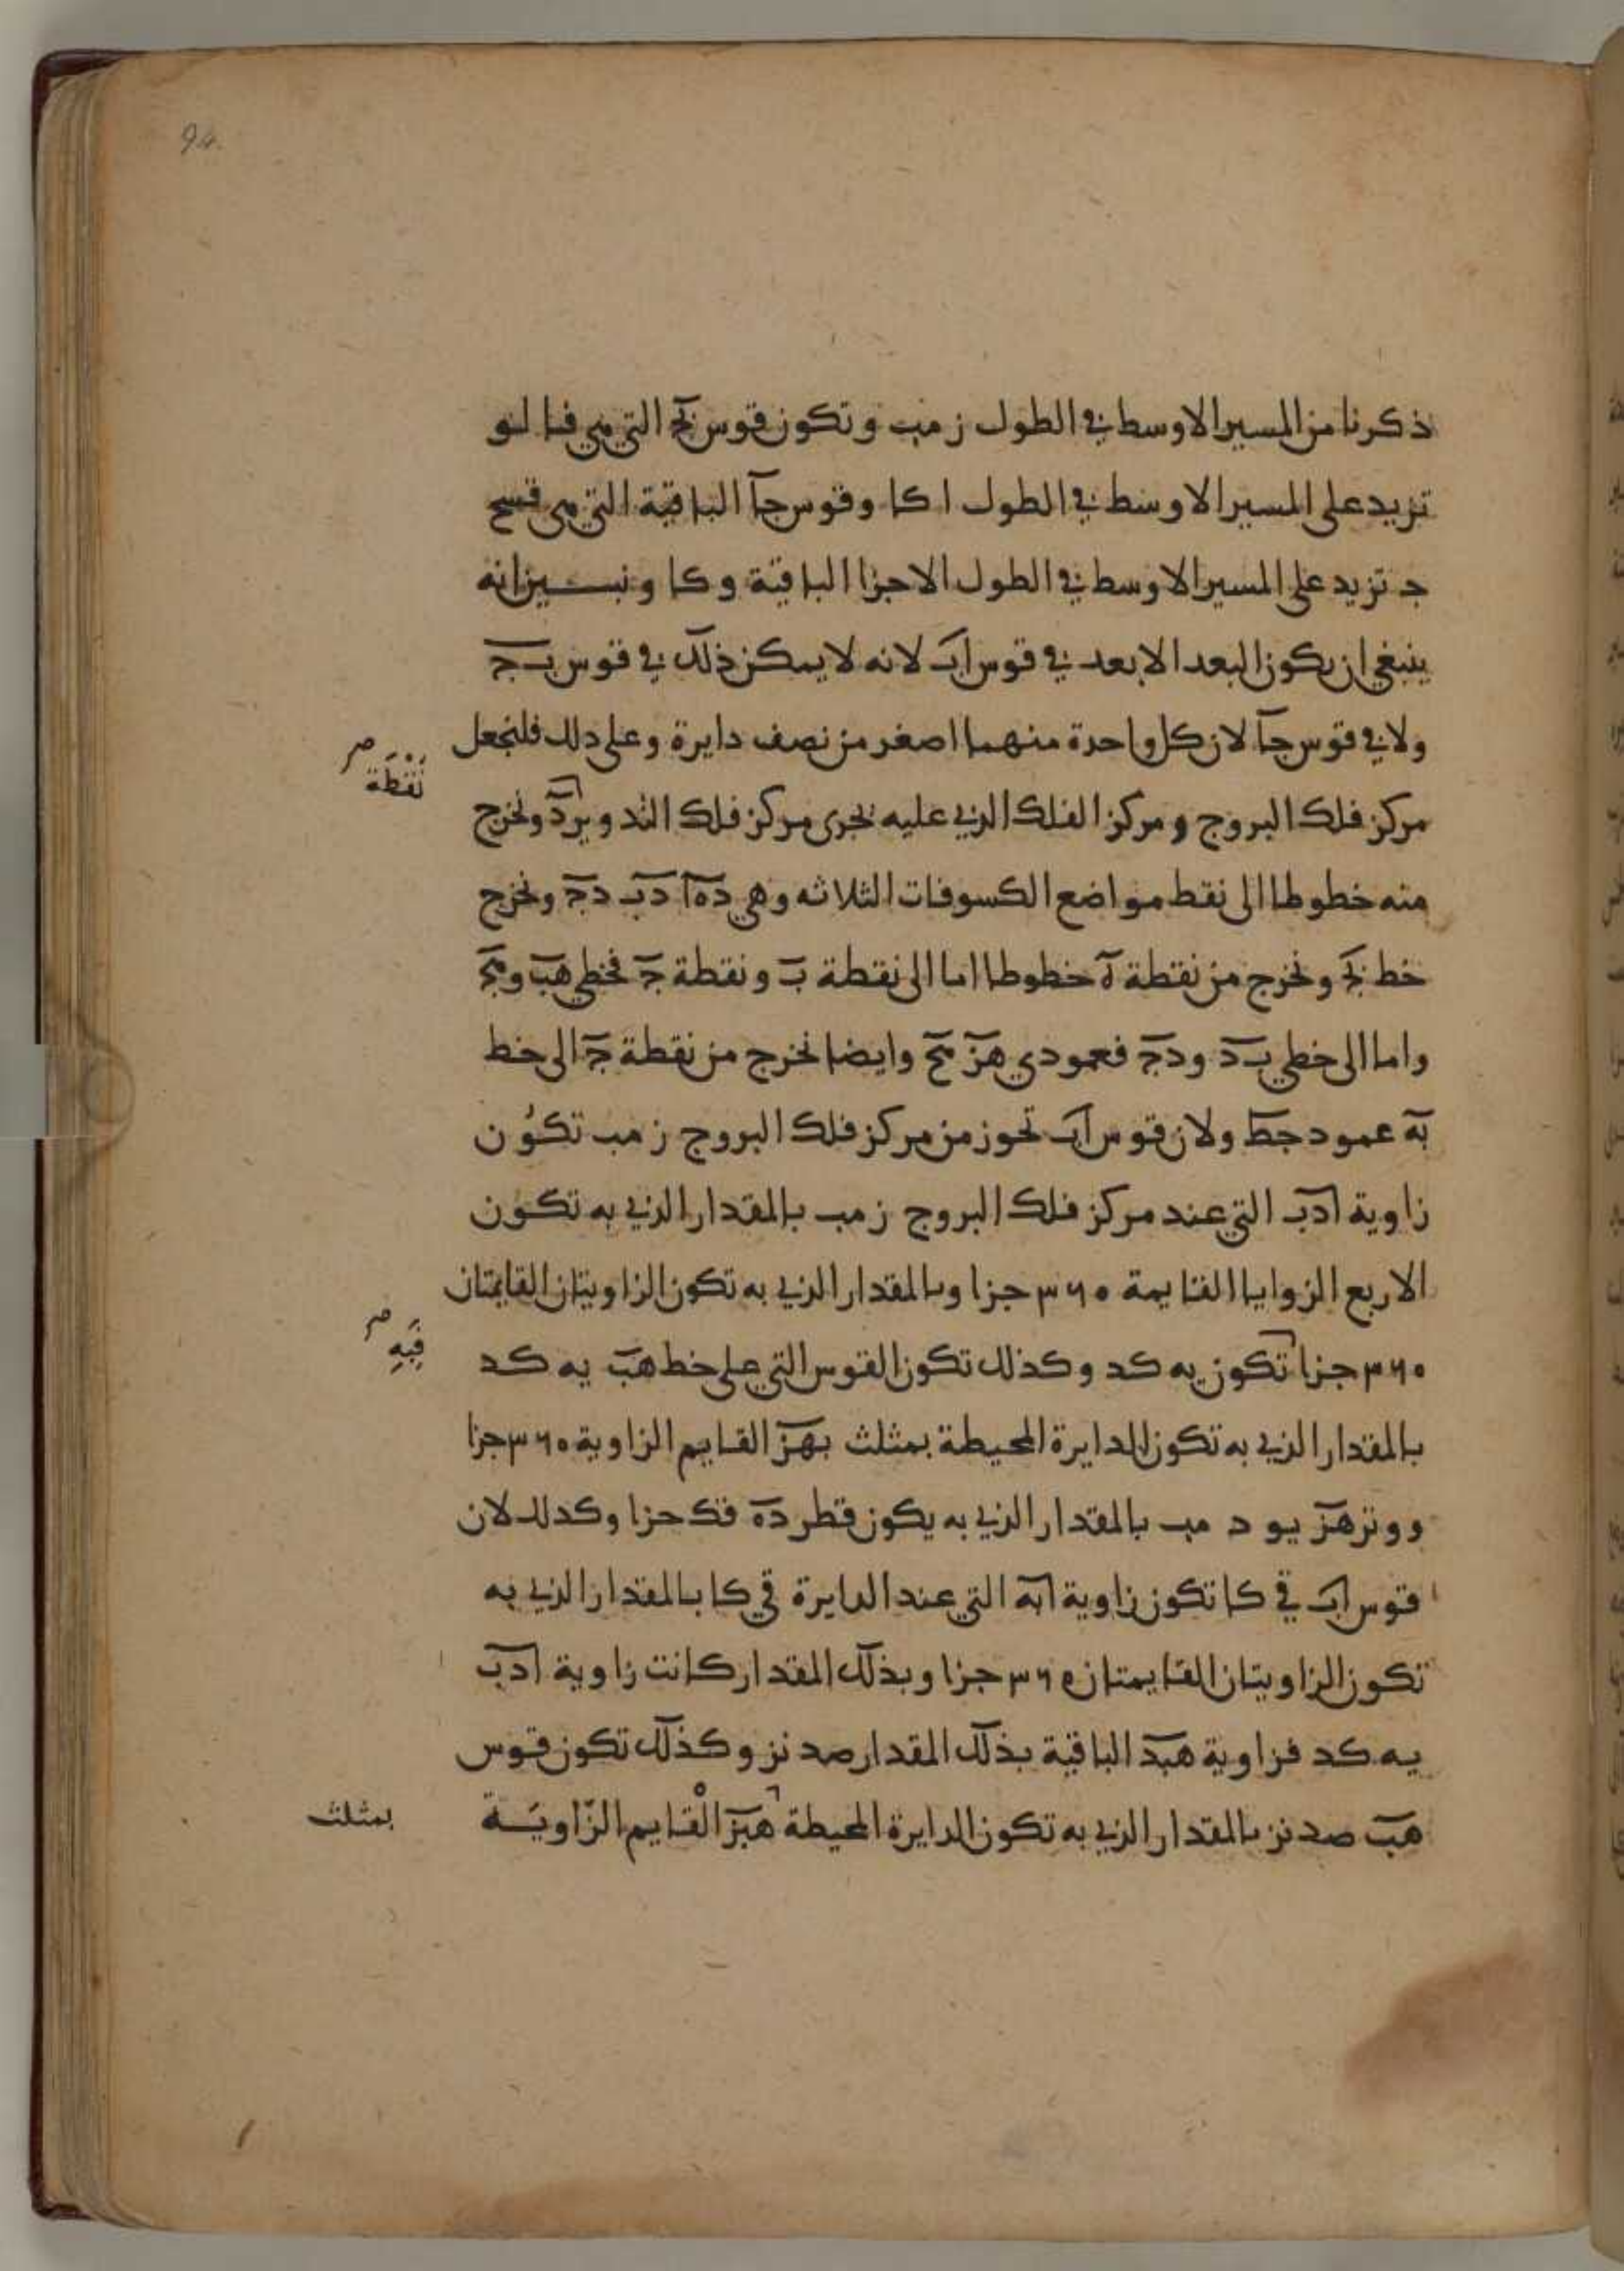 94
ذكرنا من المسير الاوسط في الطول ز مب وتكون قوس بج التي هي فا لو
تزيد على المسير الاوسط في الطول ا كا وقوس جا الباقية التي هي قسح
ج تزيد على المسير الاوسط في الطول الاجزا الباقية و كا ونبين انه
ينبغي ان يكون البعد الابعد في قوس اب لانه لا يمكن ذلك في قوس بج
ولا في قوس جا لان كل واحدة منهما اصغر من نصف دايرة وعلى دلك فلنجعل
نقطة صح
مركز فلك البروج ومركز الفلك الذي عليه يجرى مركز فلك التدوير د ونخرج
منه خطوطا الى نقط مواضع الكسوفات الثلاثه وهي ده ا دب دج ونخرج
خط بج ونخرج من نقطة ه خطوطا اما الى نقطة ب ونقطة ج فخطي هب وهج
واما الى خطي بد ودج فعمودي هز هح وايضا نخرج من نقطة ج الى خط
به عمود جط ولان قوس اب تحوز من مركز فلك البروج ز مب تكون
زاوية ادب التي عند مركز فلك البروج ز مب بالمقدار الذي به تكون
الاربع الزوايا القايمة ٣٦٠ جزا وبالمقدار الذي به تكون الزاويتان القايمتان
فيه صح
٣٦٠ جزا تكون يه كد وكذلك تكون القوس التي على خط هب يه كد
بالمقدار الذي به تكون الدايرة المحيطة بمثلث بهز القايم الزاوية ٣٦٠ جزا
ووتر هز يو د مب بالمقدار الذي به يكون قطر ده قك حزا وكدلك لان
قوس اب قي كا تكون زاوية ابه التي عند الدايرة قي كا بالمقدار الذي به
تكون الزاويتان القايمتان ٣٦٠ جزا وبذلك المقدار كانت زاوية ادب
يه كد فزاوية هبد الباقية بذلك المقدار صد نز وكذلك تكون قوس
هب صد نز بالمقدار الذي به تكون الدايرة المحيطة هبز القايم الزاوية
بمثلث